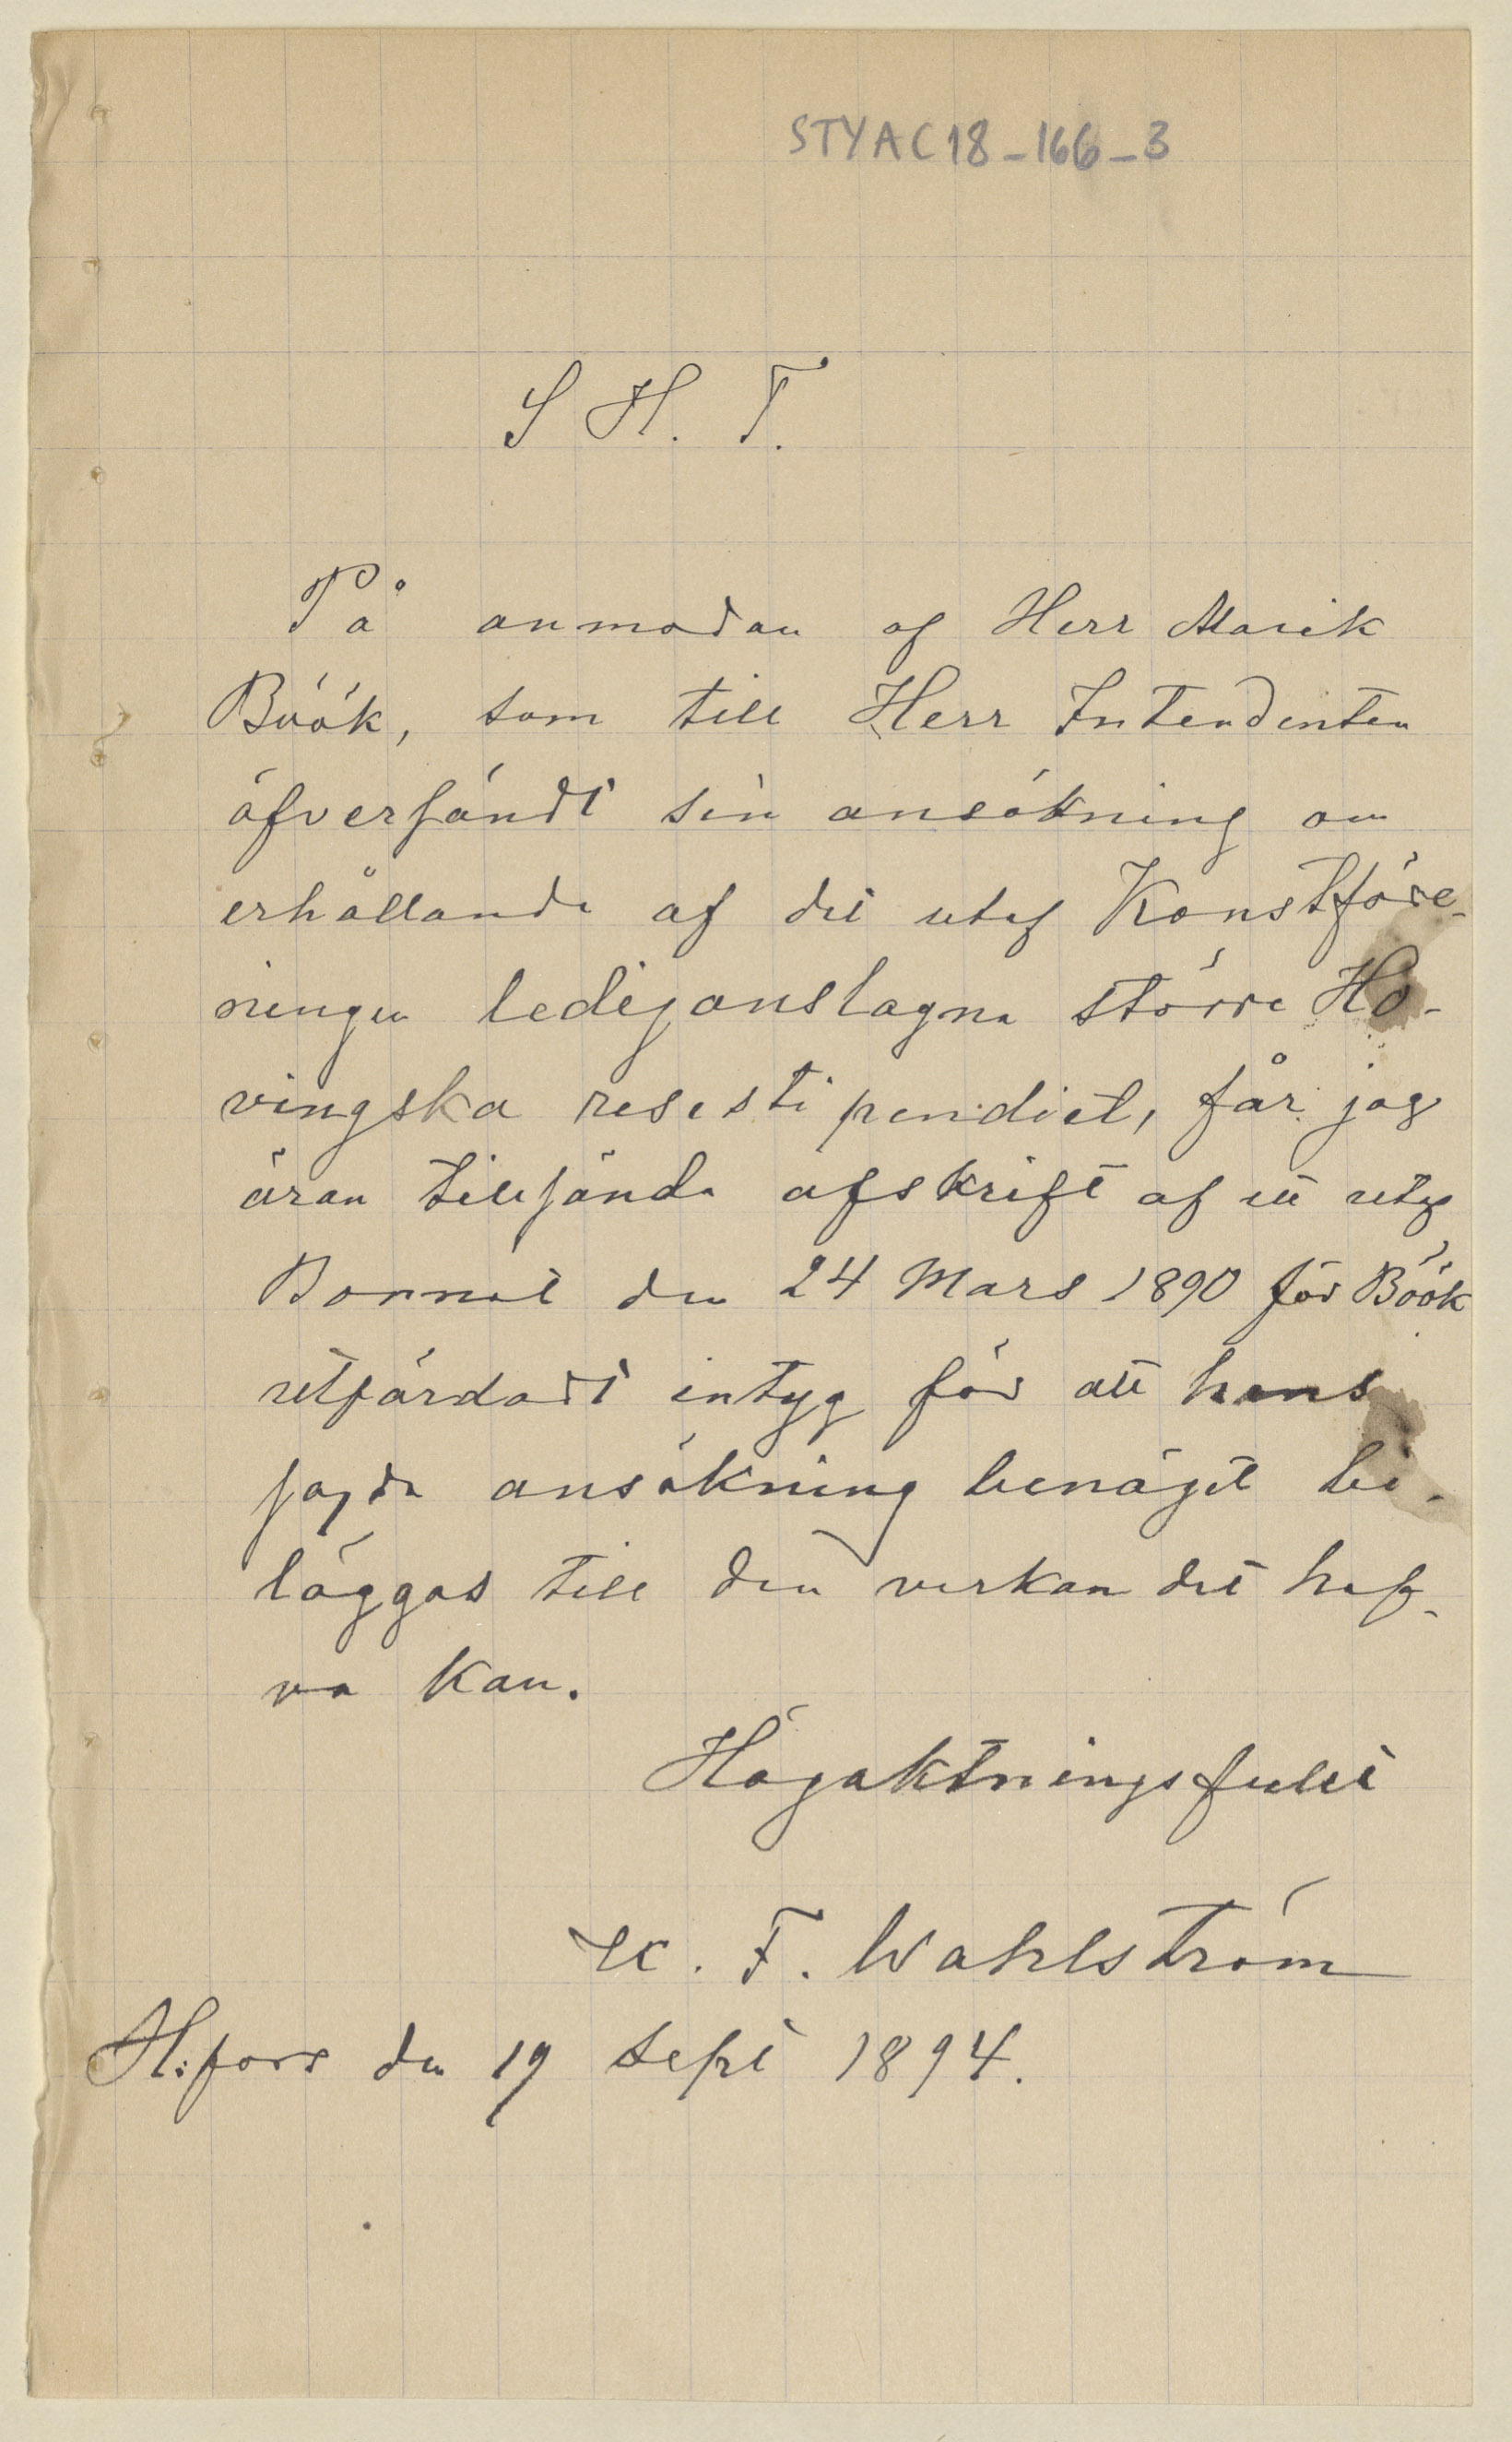 STYAC18-166-3
S H. T.
På anmodan af Herr Marik
Böök, som till Herr Intendenten
öfversändt sin ansökning om
erhållande af det utaf Konstföre-
ningen lediganslagna större Ho-
vingska resestipendiet, får jag
äran tillsända afskrift af ett utaf
Bonnat den 24 Mars 1890 för Böök
utfärdadt intyg för att hans
sagda ansökning benäget bi-
läggas till den verkan det haf-
va kan.
Högaktningsfullt
K. F. Wahlström
H:fors den 19 Sept 1894.